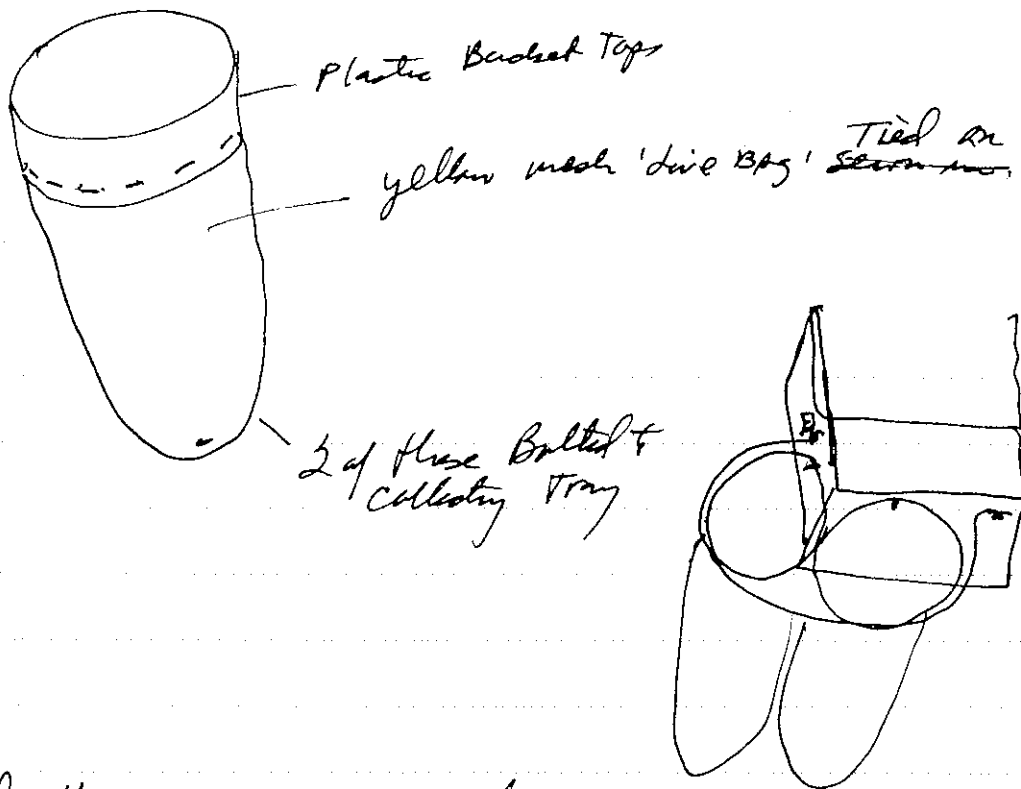 Plastic Bucket Tops
yellow mesh 'Live Bag' Tied on
2 of these Bolted to
Collecting Tray